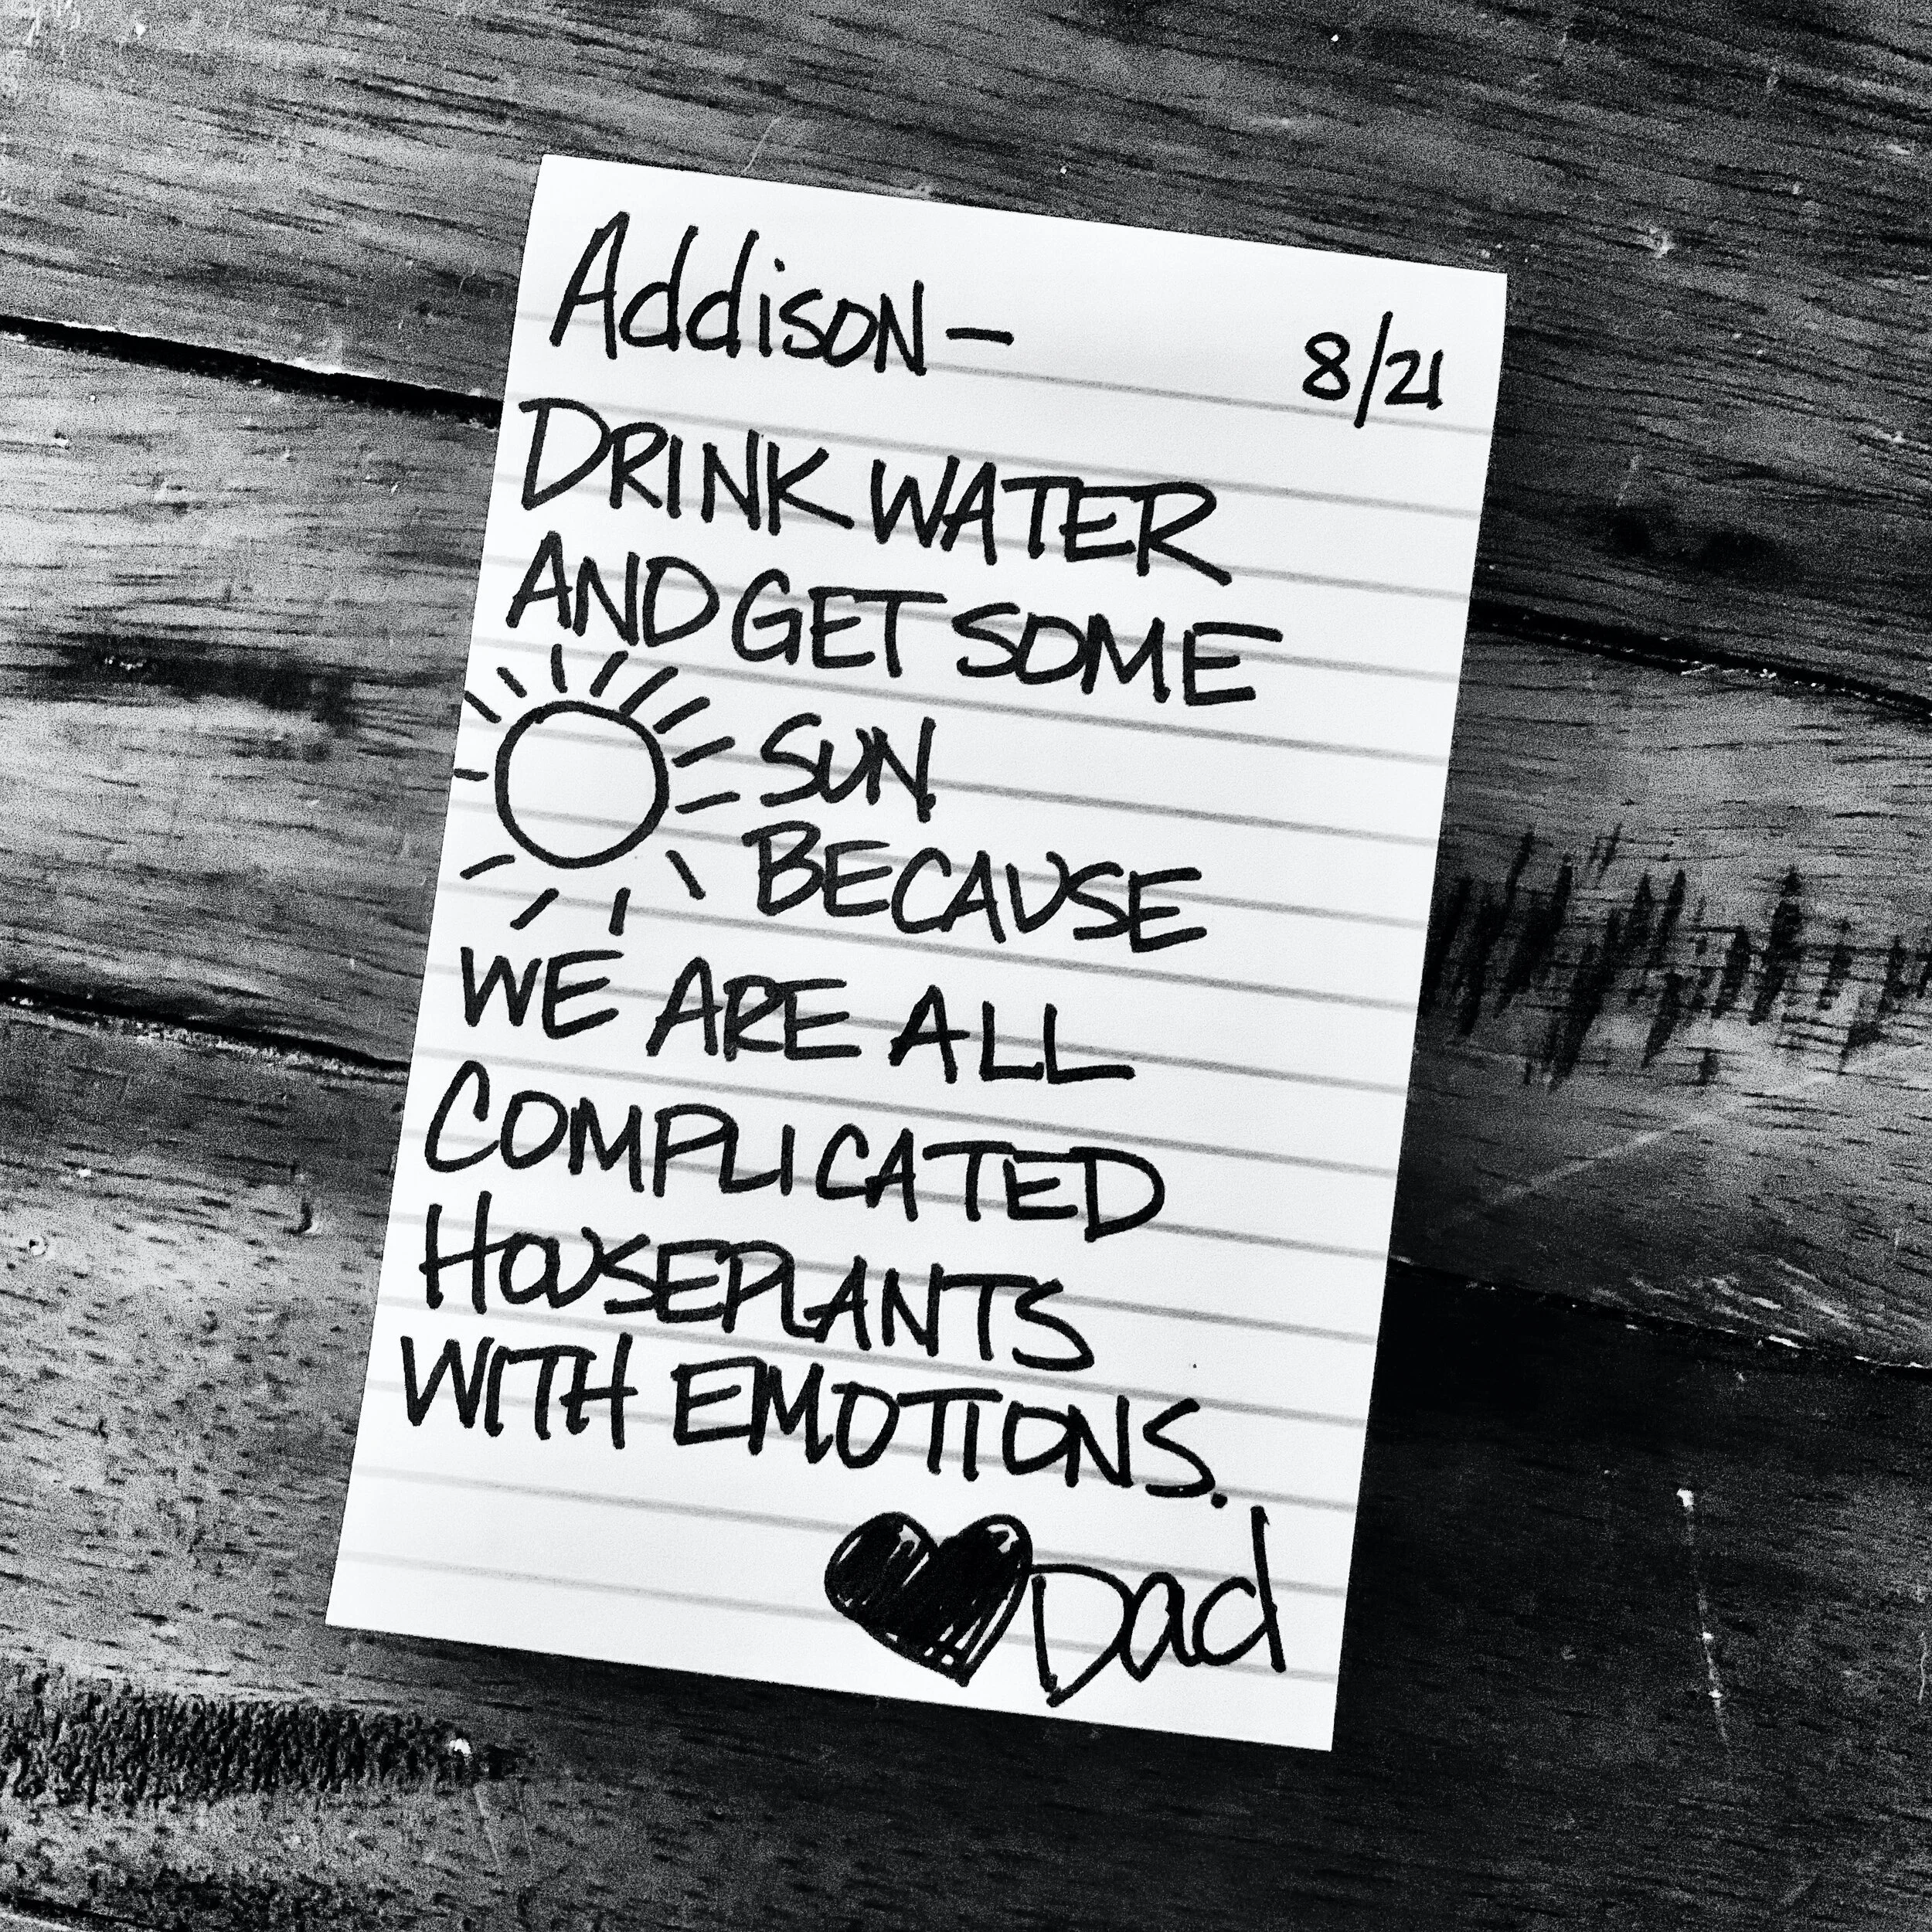 Addison—
8/21
DRINK WATER
AND GET SOME
SUN.
BECAUSE
WE ARE ALL
COMPLICATED
HOUSEPLANTS
WITH EMOTIONS.
Dad